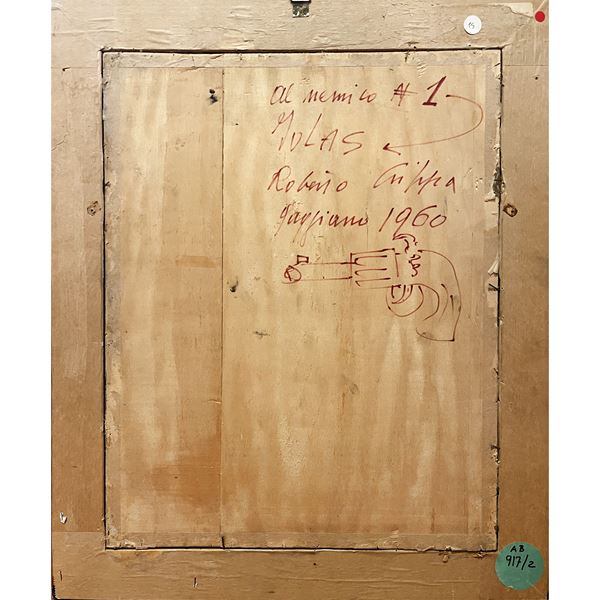 15
al nemico # 1
IOLAS
Roberto Crippa
1960
AB
917/2